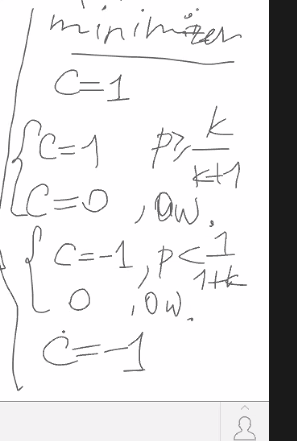 minimizer
C=1
C=1 p≥k/k+1
C=0 , ow.
C=-1, p<1/1+k
0 , ow.
C=-1